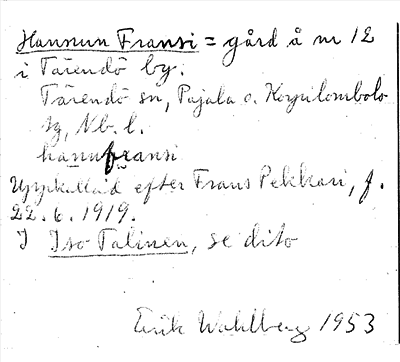 Hannun Fransi = gård å nr 12
i Tärendö by.
Tärendö sn, Pajala o. Korpilombolo
tg, Nb. l.
hannufransi
Uppkallad efter Frans Pekkari, f.
22.6.1919.
I Iso-Talinen, se dito
Erik Wahlberg 1953